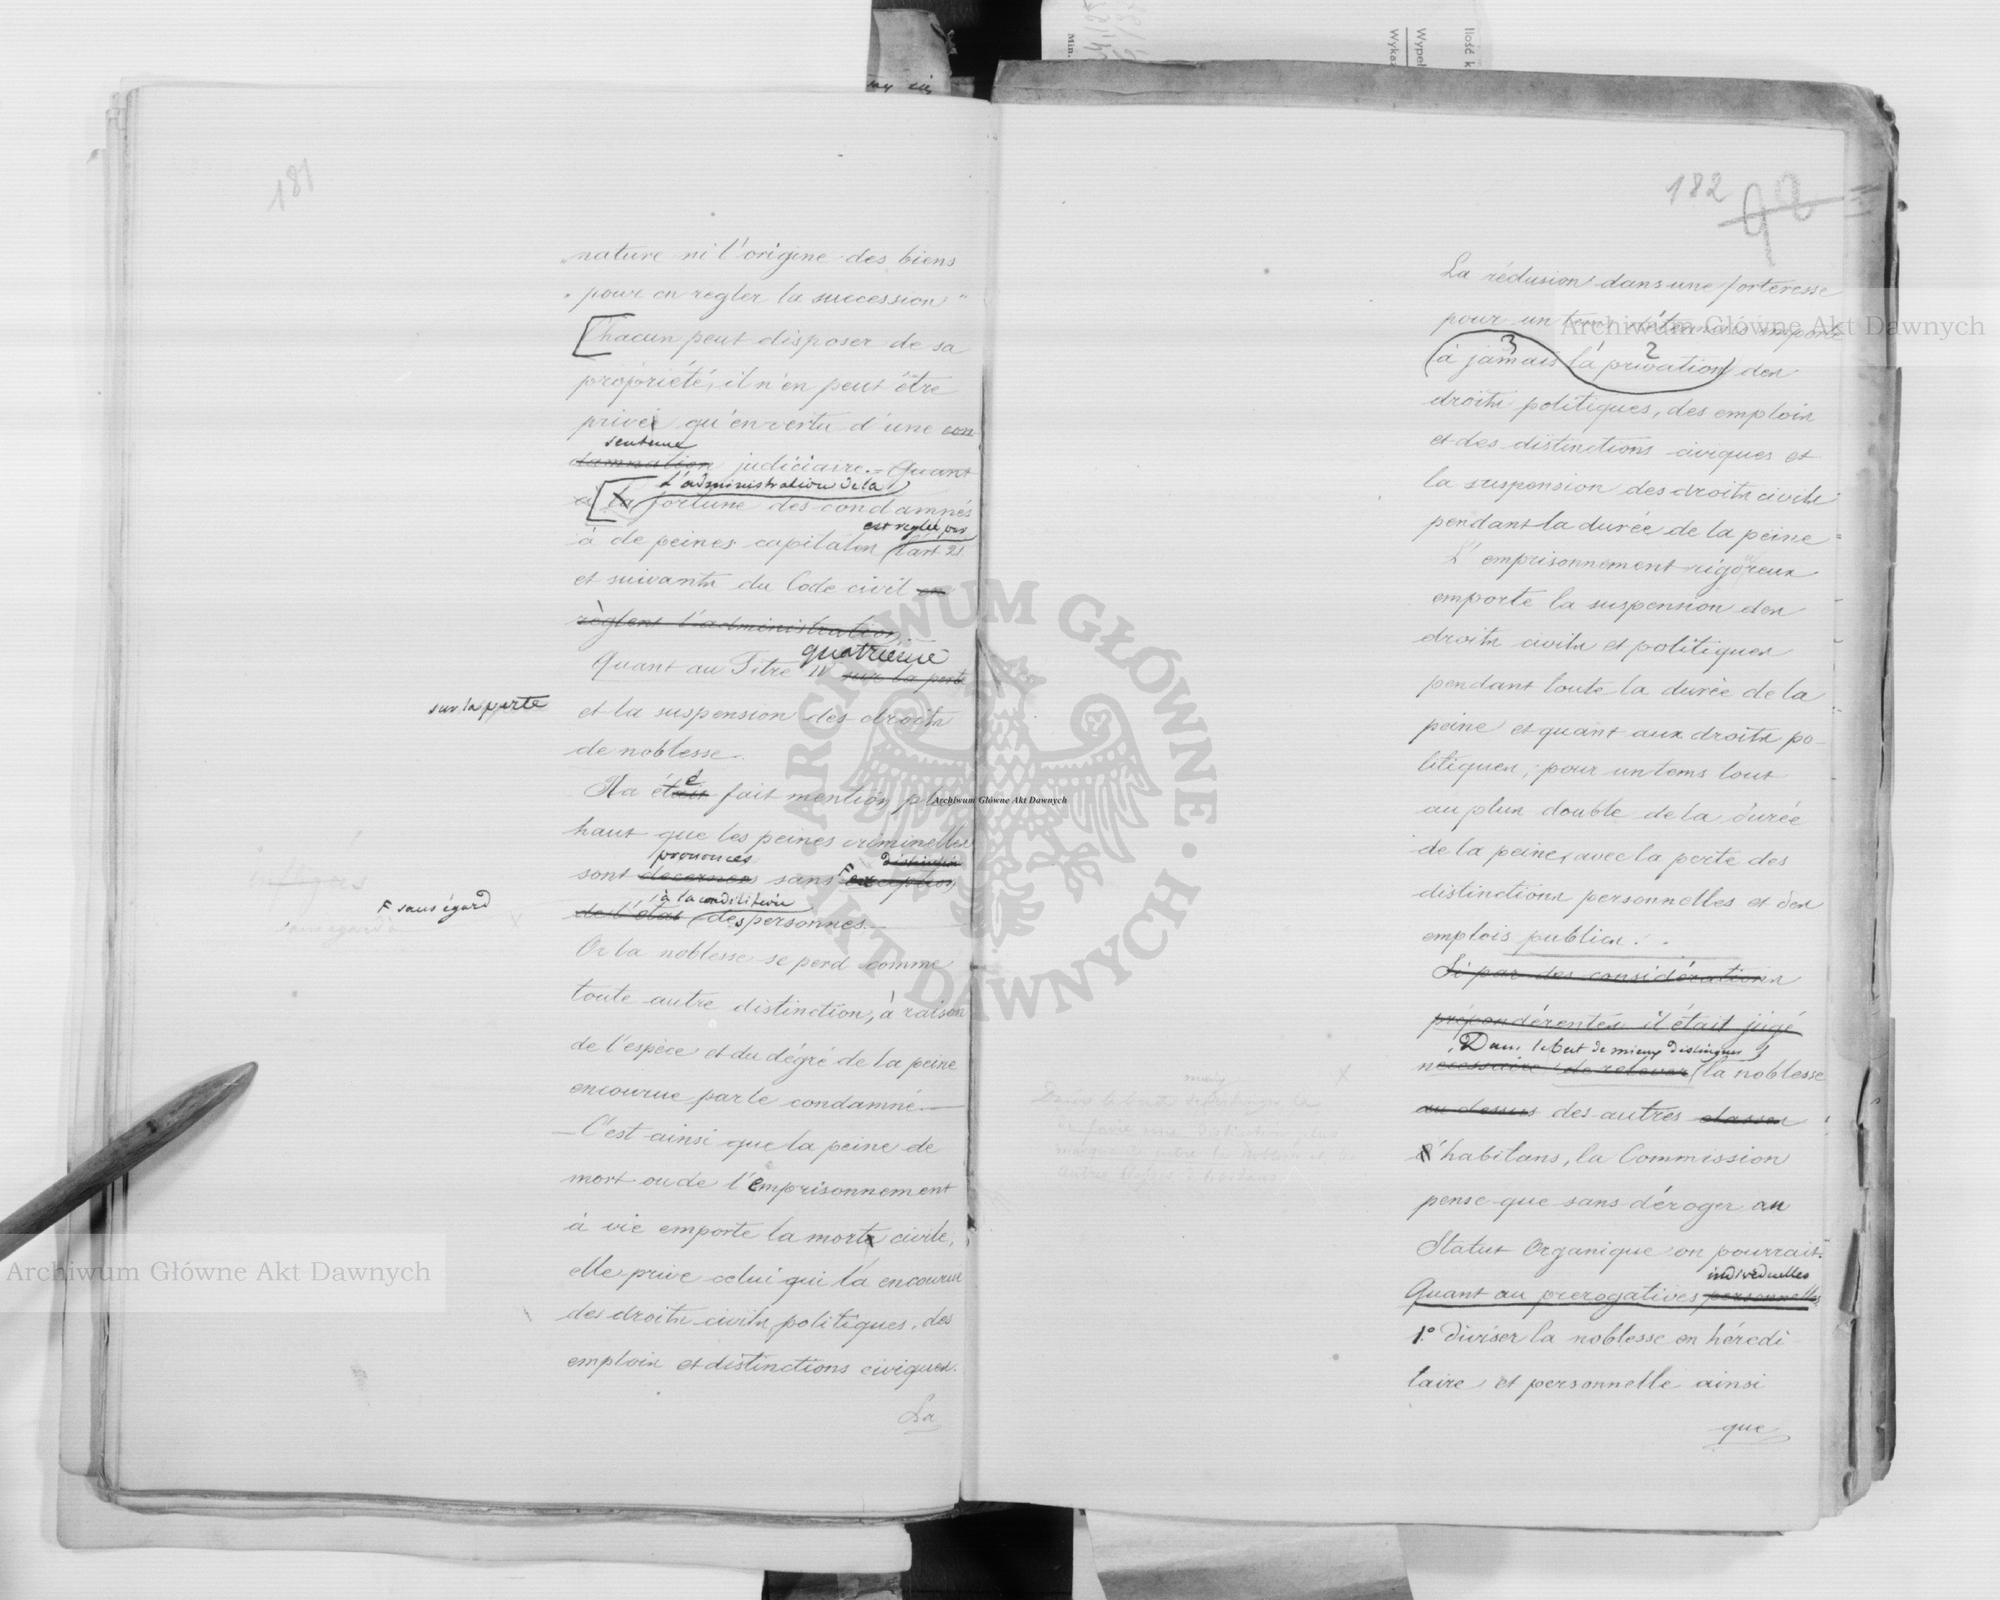 181
„nature ni l'origine des biens
„pour en regler la succession"
[Chacun peut disposer de sa
propriété, il n'en peut être
privé qu'en vertu d'une con
sentence
damnation judiciaire. = Quant
L'administration de la
à [la fortune des condamnés
est reglée par
à de peines capitales l'art 21.
et suivants du Code civil en
règlent l'administration
quatrième
Quant au Titre IV sur la perte
sur la perte
et la suspension des droits
de noblesse.
Il a été fait mention plus
haut que les peines criminelles
prononcés
sont decernees sans exception
F sans égard
à la condition
de l'état des personnes.—
Or la noblesse se perd comme
toute autre distinction, à raison
de l'espèce et du dégré de la peine
encourue par le condamné.—
— C'est ainsi que la peine de
mort ou de l'emprisonnement
à vie emporte la mort civile,
elle prive celui qui l'a encourue
des droits civils, politiques, des
emplois et distinctions civiques.
La
182
La réclusion dans une forteresse
pour un tems déterminé emporte
3 2
à jamais la privation des
droits politiques, des emplois
et des distinctions civiques et
la suspension des droits civils
pendant la durée de la peine
L'emprisonnement rigoreux
emporte la suspension des
droits civils et politiques
pendant toute la durée de la
peine et quant aux droits po-
litiques, pour un tems tout
au plus double de la durée
de la peine, avec la perte des
distinctions personnelles et des
emplois publics.
Si par des considérations
prépondérentes il était jugé
Dans le but de mieux distinguer
nécessaire de relever la noblesse
au dessus des autres classes
d'habitans, la Commission
pense que sans déroger au
Statut Organique on pourrait
individuelles
Quant au prerogatives personnelles
1° diviser la noblesse en hérédi
taire et personnelle ainsi
que
Archiwum Główne Akt Dawnych
Archiwum Główne Akt Dawnych
Archiwum Główne Akt Dawnych
ARCHIWUM GŁÓWNE · AKT DAWNYCH ·